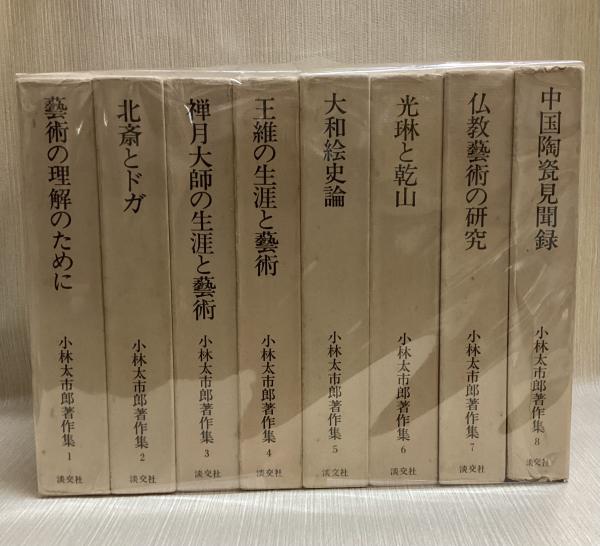 藝術の理解のために
小林太市郎著作集 1
淡交社
北斎とドガ
小林太市郎著作集 2
淡交社
禅月大師の生涯と藝術
小林太市郎著作集 3
淡交社
王維の生涯と藝術
小林太市郎著作集 4
淡交社
大和絵史論
小林太市郎著作集 5
淡交社
光琳と乾山
小林太市郎著作集 6
淡交社
仏教藝術の研究
小林太市郎著作集 7
淡交社
中国陶瓷見聞録
小林太市郎著作集 8
淡交社